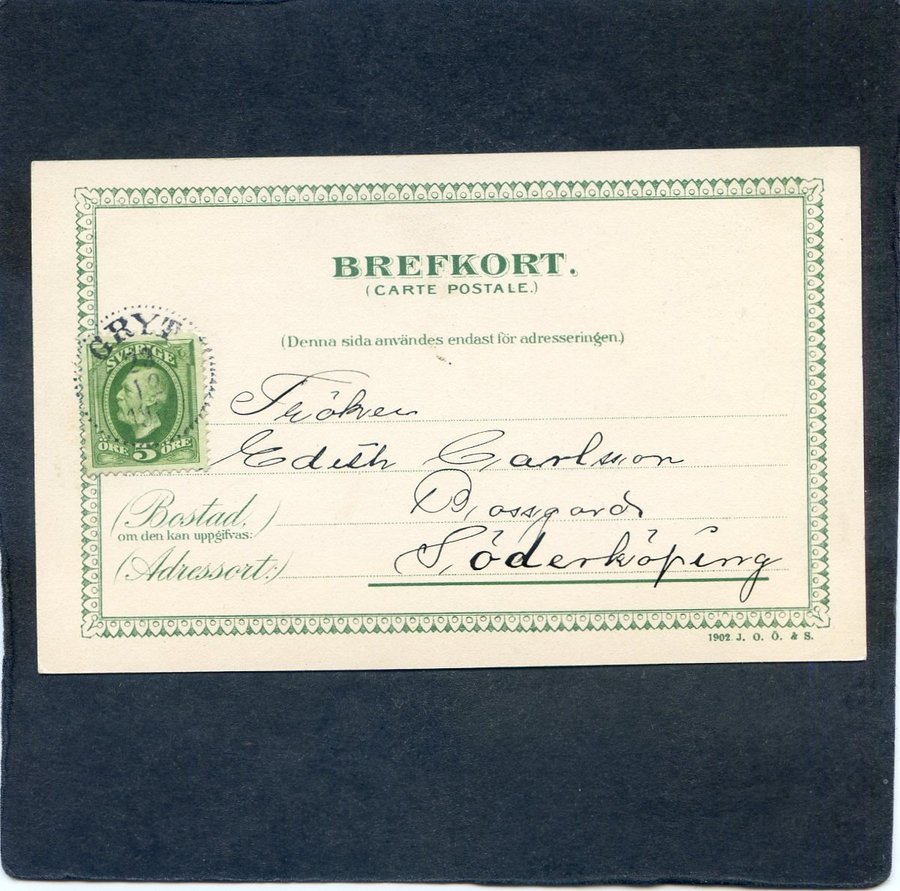 BREFKORT.
(CARTE POSTALE.)
(Denna sida användes endast för adresseringen.)
GRYT
SVERIGE
5
ÖRE ÖRE
Fröken
Edith Carlsson
(Bostad,)
om den kan uppgifvas:
(Adressort:)
Söderköping
1902 J. O. Ö. & S.